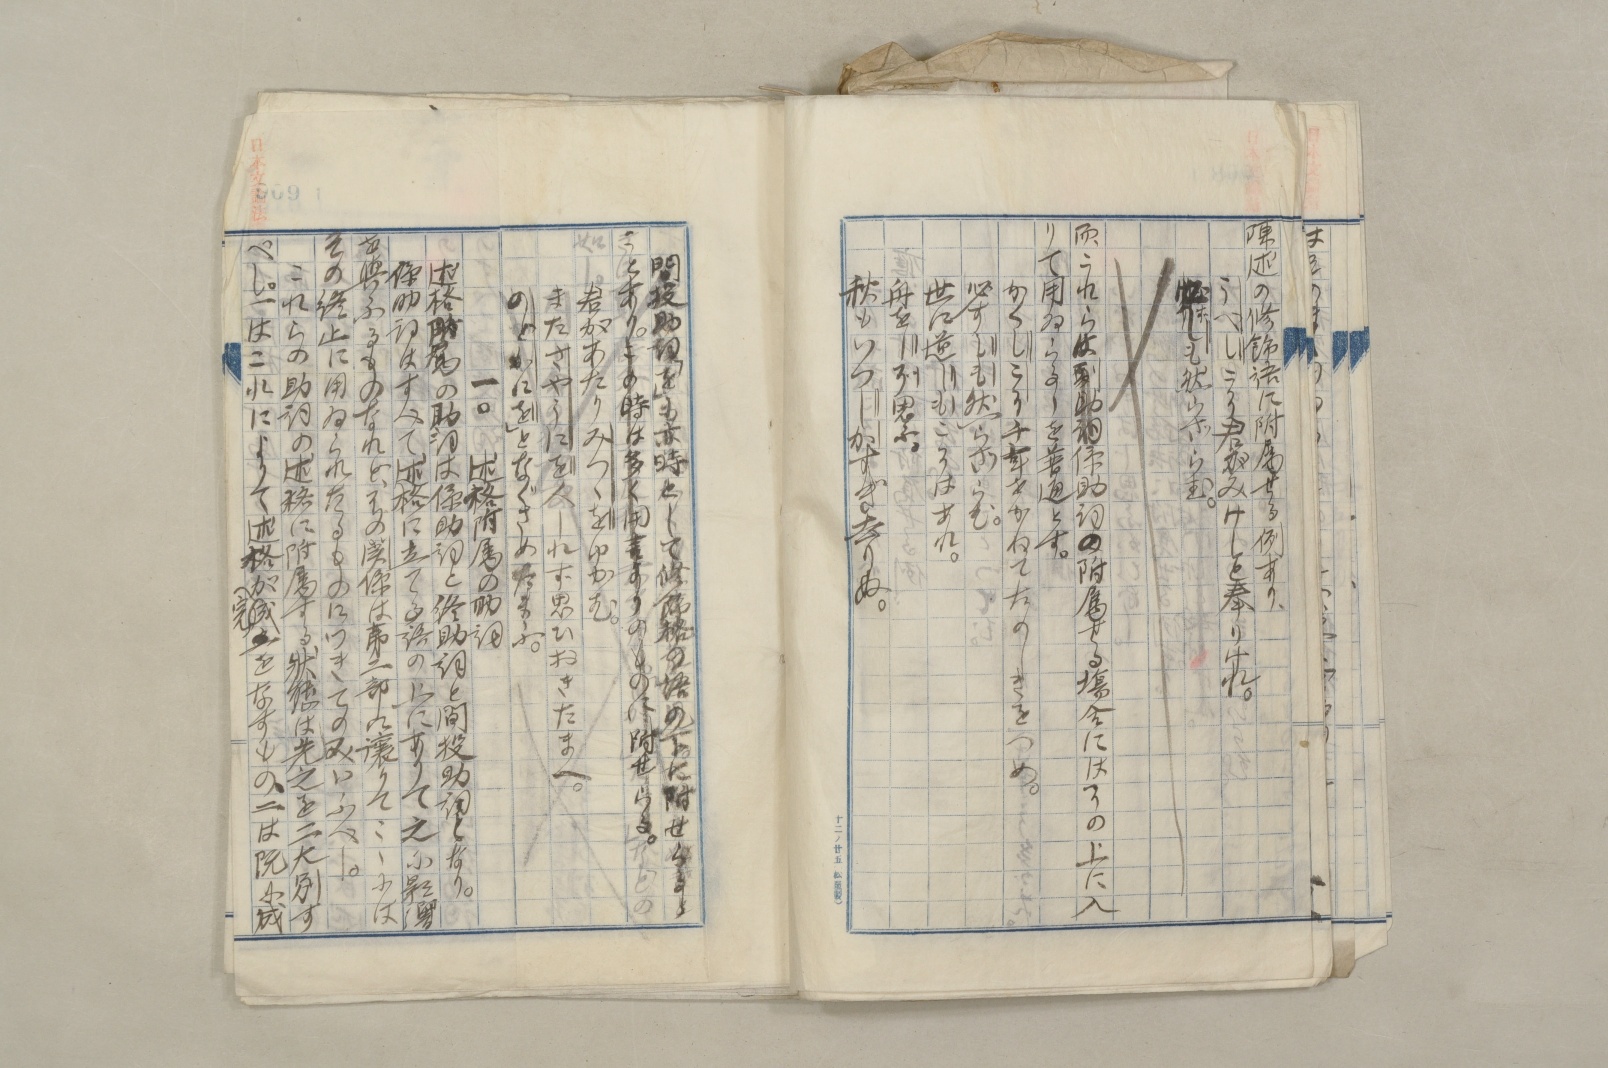 陳述の修飾語に附属せる例あり、
うべしこそ君がみけしと奉りけれ。
必しも然らざらむ。
而これらは副助詞係助詞の附属せる場合にはその上に入
りて用ゐらるゝを普通とす。
かくしこそ千年をかねてたのしきをつめ。
必ずしも然らざらむ。
世に逆しもこそはあれ。
舟をしぞ思ふ。
秋もいつしかすぎ去りぬ。
十二ノ廿五 松屋製
間投助詞「を」も亦時として修飾格の語の下に附せらるゝこ
とあり。この時は多く用言ありのものに附せらる。
如し。君があたりみつゝをゆかむ。
またさやうにを人しれず思ひおきたまへ。
のどかにを」となぐさめたまふ。
一〇 述格附属の助詞
述格附属の助詞は係助詞と終助詞と間投助詞となり。
係助詞はすべて述格に立てる語の上にありて之に影響
を与ふるものなれどその関係は第二部に譲りてこゝには
その終止に用ゐられたるものにつきてのみいふべし。
これらの助詞の述格に附属する状態は先之を二大別す
べし。一はこれによりて述格が完成をなすもの、二は既に成